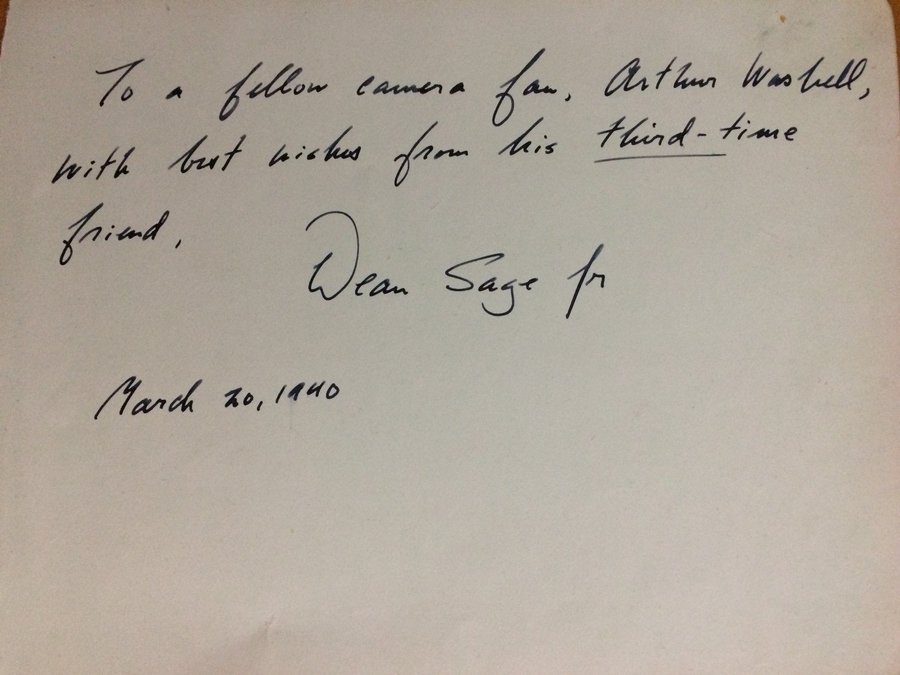 To a fellow camera fan, Arthur Waskell,
with best wishes from his third-time
friend,
Dean Sage Jr
March 20, 1940